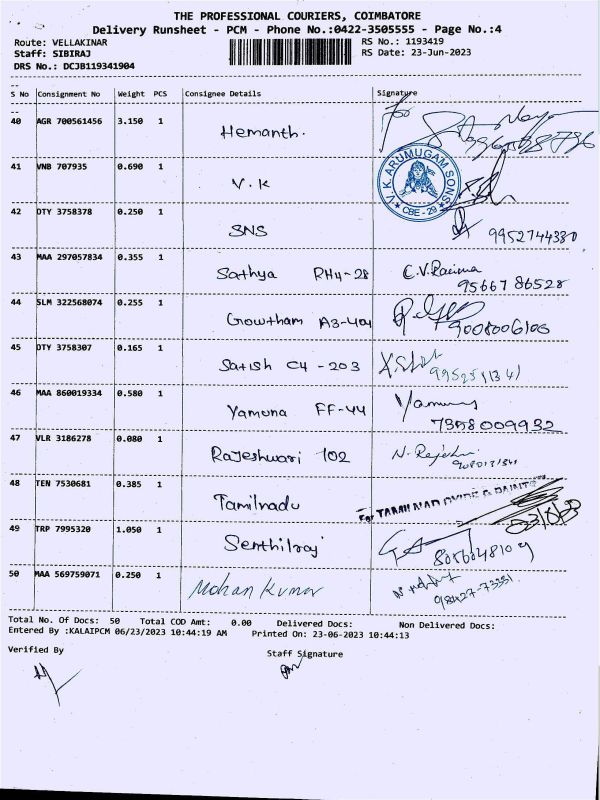 THE PROFESSIONAL COURIERS, COIMBATORE
Delivery Runsheet - PCM - Phone No.:0422-3505555 - Page No.:4
Route: VELLAKINAR RS No.: 1193419
Staff: SIBIRAJ RS Date: 23-Jun-2023
DRS No.: DCJB119341904
S No Consignment No Weight PCS Consignee Details Signature
40 AGR 700561456 3.150 1 Hemanth.
41 VNB 707935 0.690 1 V.K V.K.ARUMUGAM SONS * CBE-29 *
42 DTY 3758378 0.250 1 SNS 9952744380
43 MAA 297057834 0.355 1 Sathya RH4-28 C.V.Raima 9566786528
44 SLM 322568074 0.255 1 Gowtham A3-404 9008006106
45 DTY 3758307 0.165 1 Satish C4-203
46 MAA 860019334 0.580 1 Yamuna FF-44 Yamuna 7358009932
47 VLR 3186278 0.080 1 Rajeshwari 102 N. Rajeshwari
48 TEN 7530681 0.385 1 Tamilnadu For TAMILNAD OXIDE & PAINTS
49 TRP 7995320 1.050 1 Senthilraj
50 MAA 569759071 0.250 1 Mohan Kumar 98427-73351
Total No. Of Docs: 50 Total COD Amt: 0.00 Delivered Docs: Non Delivered Docs:
Entered By :KALAIPCM 06/23/2023 10:44:19 AM Printed On: 23-06-2023 10:44:13
Verified By Staff Signature